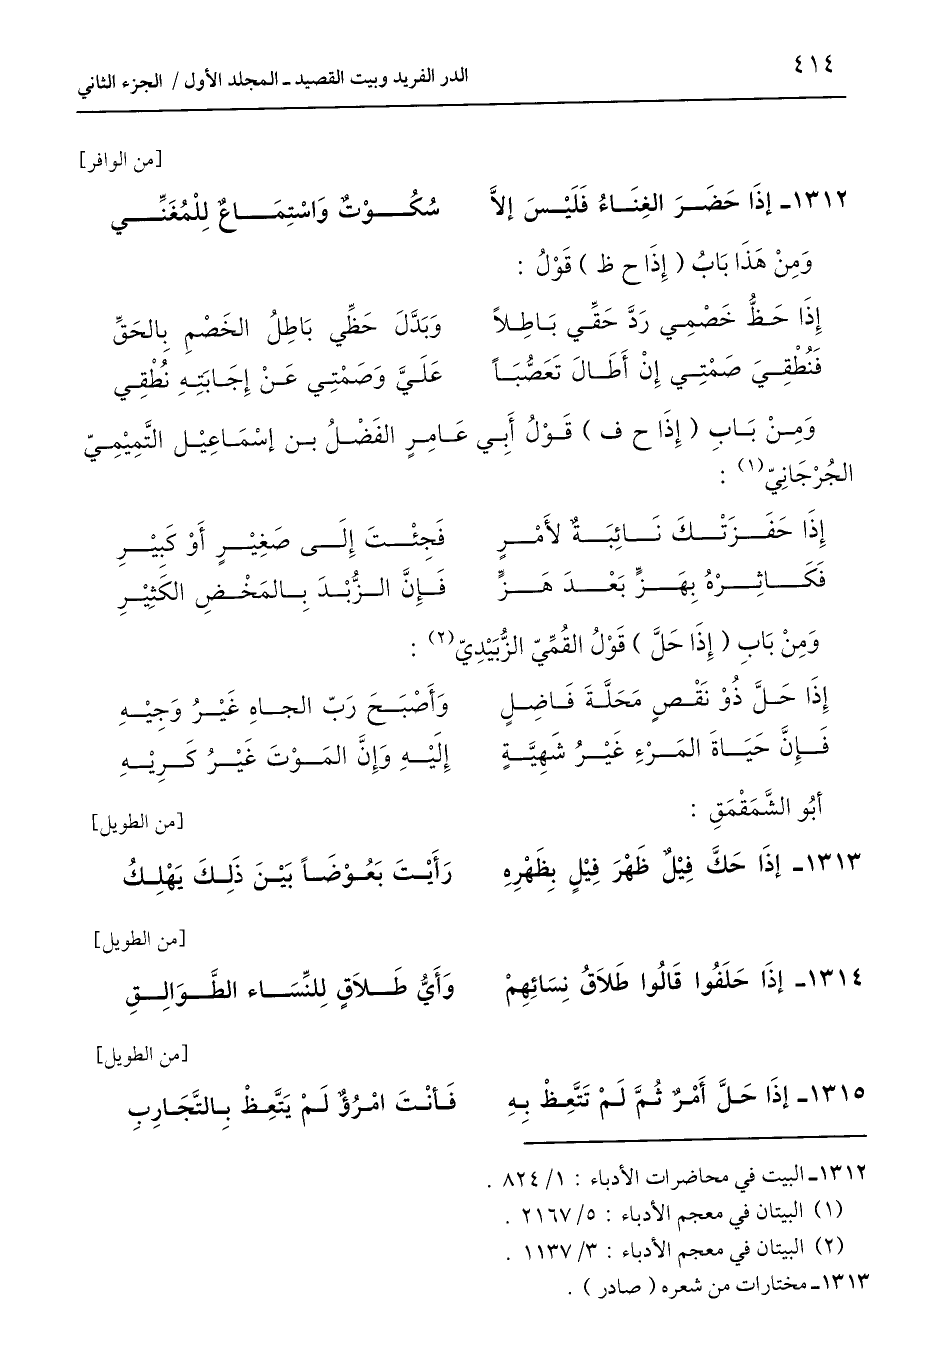 ٤١٤ الدر الفريد وبيت القصيد - المجلد الأول / الجزء الثاني
[من الوافر]
١٣١٢- إِذَا حَضَرَ الغِنَاءُ فَلَيْسَ إلاَّ سُكُوْتٌ وَاسْتِمَاعٌ لِلْمُغَنِّي
وَمِنْ هَذَا بَابُ ( إِذَا ح ظ ) قَوْلُ :
إِذَا حَظُّ خَصْمِي رَدَّ حَقِّي بَاطِلاً وَبَدَّلَ حَظِّي بَاطِلُ الخَصْمِ بِالحَقِّ
فَنُطْقِيَ صَمْتِي إِنْ أَطَالَ تَعَصُّبَاً عَلَيَّ وَصَمْتِي عَنْ إِجَابَتِهِ نُطْقِي
وَمِنْ بَابِ ( إِذَا ح ف ) قَوْلُ أَبِي عَامِرِ الفَضْلُ بن إسْمَاعِيْل التَّمِيْمِيّ
الجُرْجَانِيّ(١) :
إِذَا حَفَزَتْكَ نَائِبَةٌ لأَمْرٍ فَجِئْتَ إِلَى صَغِيْرٍ أَوْ كَبِيْرِ
فَكَاثِرْهُ بِهَزٍّ بَعْدَ هَزٍّ فَإِنَّ الزُّبْدَ بِالمَخْضِ الكَثِيْرِ
وَمِنْ بَابِ ( إِذَا حَلَّ ) قَوْلُ القُمِّيّ الزُّبَيْدِيّ(٢) :
إِذَا حَلَّ ذُوْ نَقْصٍ مَحَلَّةَ فَاضِلٍ وَأَصْبَحَ رَبّ الجاهِ غَيْرُ وَجِيْهِ
فَإِنَّ حَيَاةَ المَرْءِ غَيْرُ شَهِيَّةٍ إِلَيْهِ وَإِنَّ المَوْتَ غَيْرُ كَرِيْهِ
أبُو الشَّمَقْمَقِ : [من الطويل]
١٣١٣- إِذَا حَكَّ فِيْلٌ ظَهْرَ فِيْلٍ بِظَهْرِهِ رَأَيْتَ بَعُوْضَاً بَيْنَ ذَلِكَ يَهْلِكُ
[من الطويل]
١٣١٤- إِذَا حَلَفُوا قَالُوا طَلَاقُ نِسَائِهِمْ وَأَيُّ طَلَاقٍ لِلنِّسَاء الطَّوَالِقِ
[من الطويل]
١٣١٥- إِذَا حَلَّ أَمْرٌ ثُمَّ لَمْ تَتَّعِظْ بِهِ فَأَنْتَ امْرُؤٌ لَمْ يَتَّعِظْ بِالتَّجَارِبِ
١٣١٢- البيت في محاضرات الأدباء : ١/ ٨٢٤ .
(١) البيتان في معجم الأدباء : ٥/ ٢١٦٧ .
(٢) البيتان في معجم الأدباء : ٣/ ١١٣٧ .
١٣١٣- مختارات من شعره ( صادر ) .